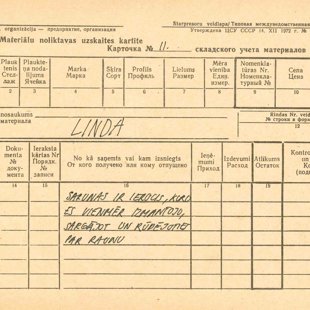 Starpresoru veidlapa/Типовая междуведомственная
организация — предприятие, организация
Утверждена ЦСУ СССР 14. XII 1972 г. №
Materiālu noliktavas uzskaites kartīte
Карточка № 11. складского учета материалов
Plaukteņa Ячейка
Marka Марка
Šķira Сорт
Profils Профиль
Lielums Размер
Mēra vienība Един. измер.
Nomenklatūras Nr. Номенклатурный №
Cena Цена
2 3 4 5 6 7 8 9 10
nosaukums материала
LINDA
Rindas Nr. veidl
№ строки в форме
12
Dokumenta № документа
Ieraksta kārtas Nr Порядк. № записи
No kā saņemts vai kam izsniegts От кого получено или кому отпущено
Ieņēmumi Приход
Izdevumi Расход
Atlikums Остаток
14 15 16 17 18 19
SARUNAS IR IEROCIS, KURU
ES VIENMĒR IZMANTOJU,
SARGĀJOT UN RŪPĒJOTIES
PAR RAUNU